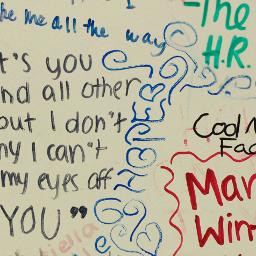 me all the way
t's you
nd all other
but I don't
I can't
my eyes off
YOU"
-The
H.R.
Cool
Fac
Mar
Win